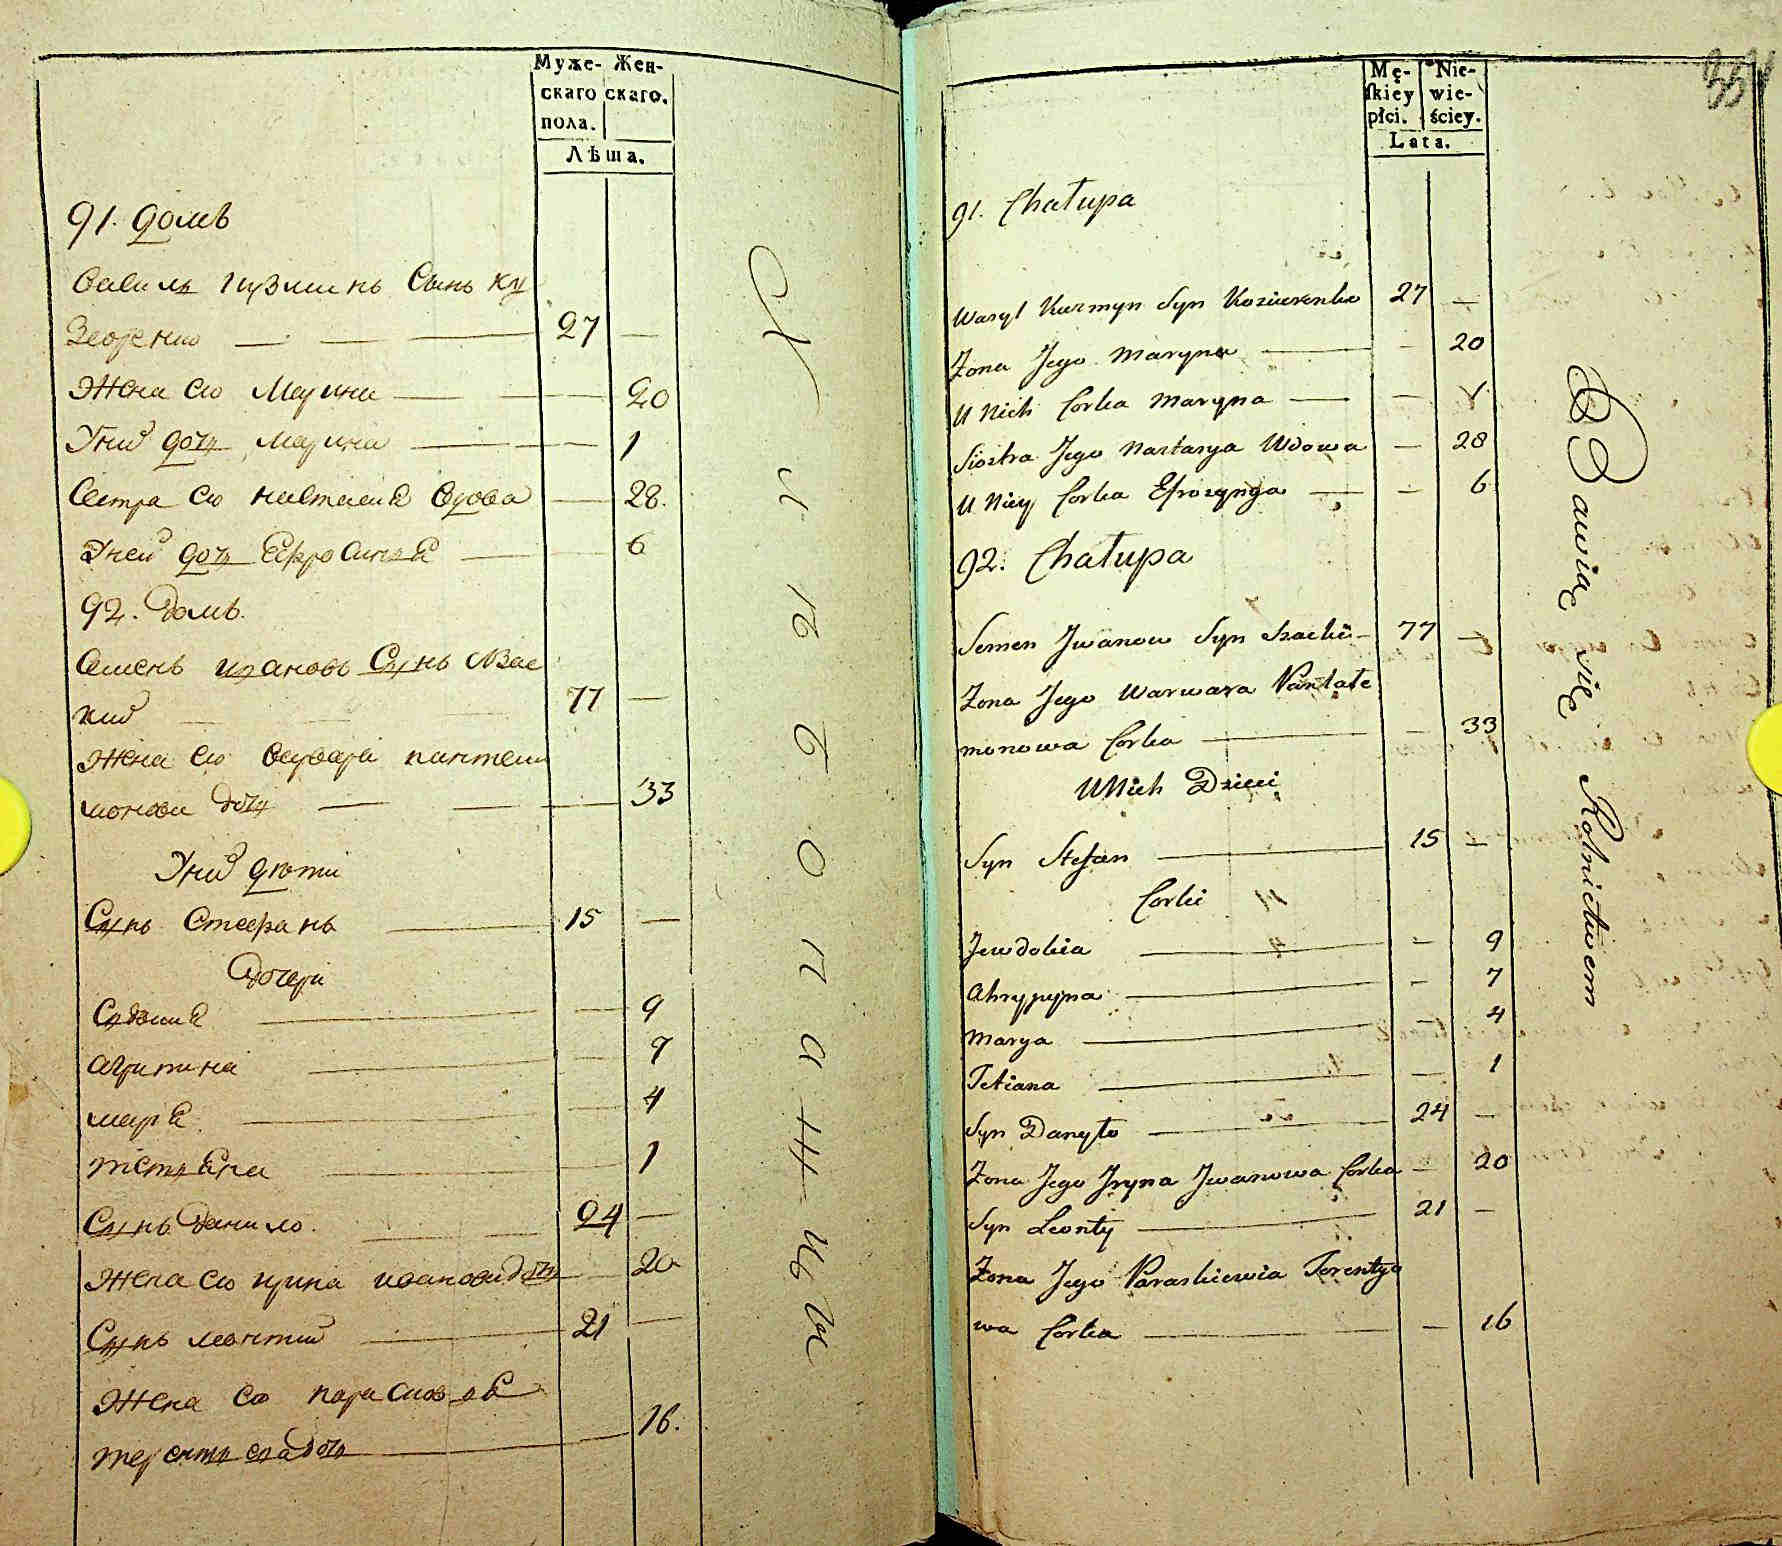 Муже- Жен-
скаго скаго.
пола.
Лѣта.
91. домъ
Василь Кузминъ Сынъ Ку
27 —
Жена его Марина — — 20
У нихъ дочь Марина — — 1
Сестра его настасия вдова — 28.
У ней дочь Ефросиния — 6
92. Домъ.
Семенъ ивановъ Сынъ
77 —
Жена его варвара пантели
монова дочь — — 33
У нихъ дѣти
Сынъ Стефанъ — 15 —
дочери
Евдокия — 9
агрипина — 7
мария — 4
тетияна — 1
Сынъ данило. — 24 —
Жена его ирина иванова дочь — 20
Сынъ леонтий — 21 —
Жена его парасковия
терентиева дочь — 16.
Хлѣбопашцы
Mę- Nie-
skiey wie-
płci. ściey.
Lata.
91. Chałupa
Wasyl Kuzmyn Syn 27 —
Żona Jego Maryna — — 20
U Nich Corka Maryna — — 1
Siostra Jego Nastasya Wdowa — 28
U Niey Corka Efrozynya — — 6
92. Chałupa
Semen Jwanow Syn Szacki — 77 —
Żona Jego Warwara Pantałe
monowa Corka — — 33
U Nich Dzieci
Syn Stefan — 15 —
Corki
Jewdokia — — 9
Ahrypyna — — 7
Marya — — 4
Tetiana — — 1
Syn Danyło — 24 —
Żona Jego Jryna Jwanowa Corka — 20
Syn Leonty — 21 —
Żona Jego Paraskiewia Terentye
wa Corka — — 16
Bawią się Rolnictwem